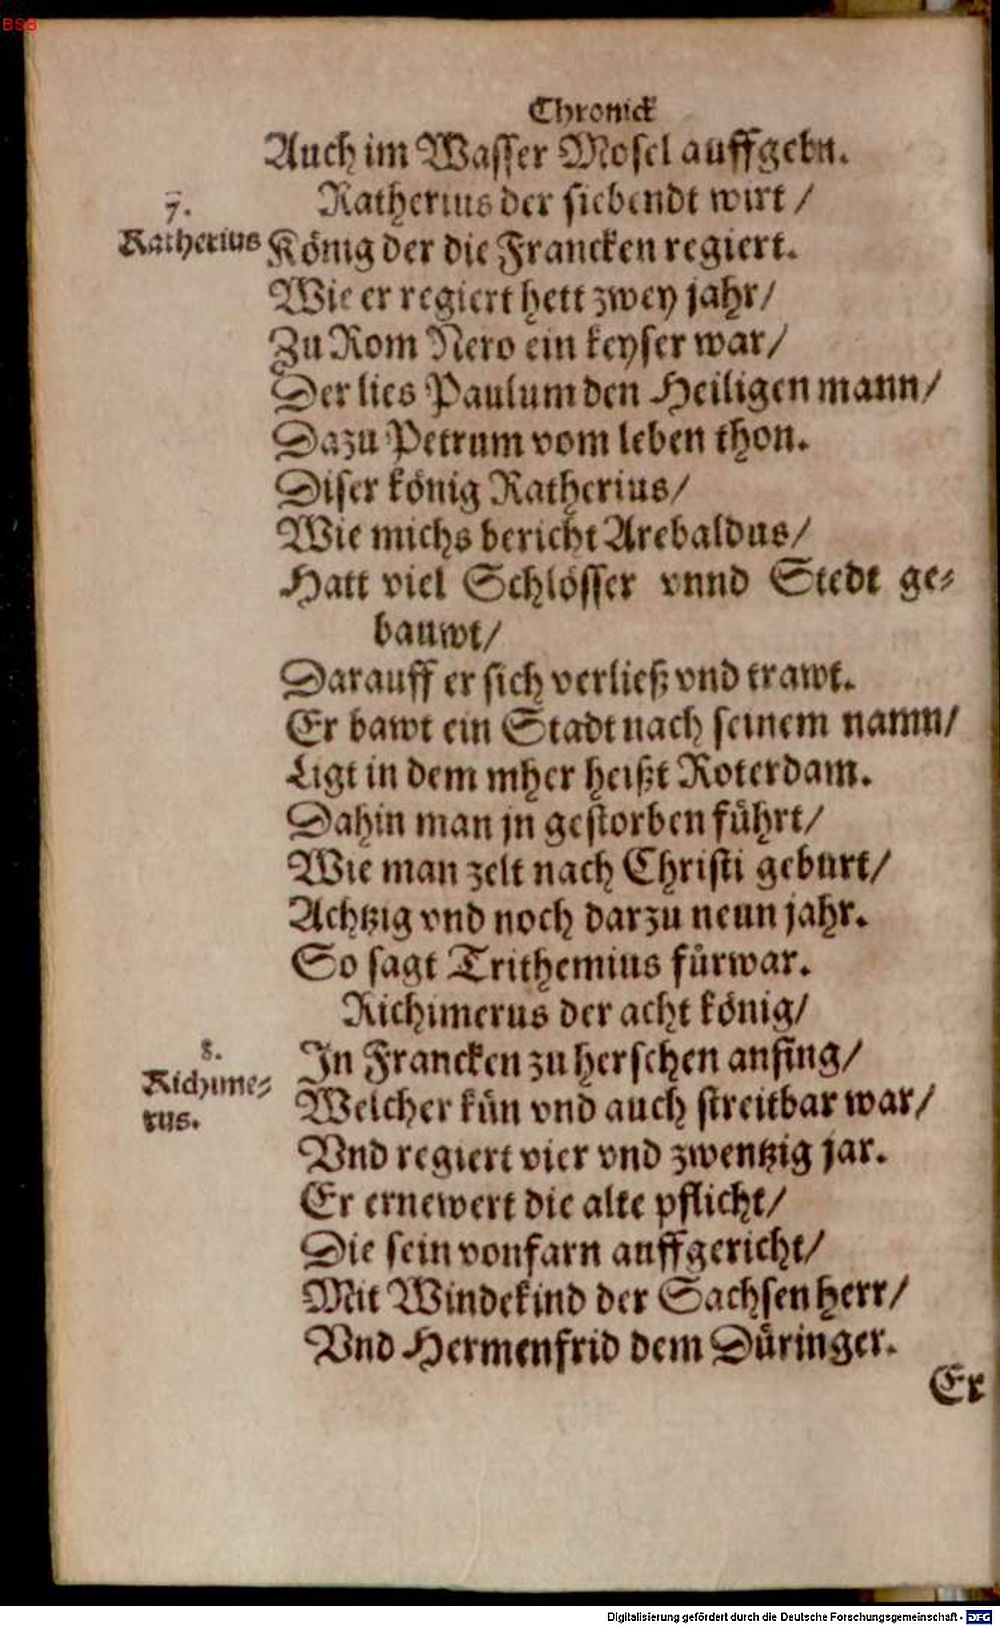 BSB
Chronick
Auch im Wasser Mosel auffgebn.
Ratherius der siebendt wirt /
7.
Ratherius König der die Francken regiert.
Wie er regiert hett zwey jahr/
Zu Rom Nero ein keyser war/
Der lies Paulum den Heiligen mann/
Dazu Petrum vom leben thon.
Diser könig Ratherius/
Wie michs bericht Arebaldus/
Hatt viel Schlösser vnnd Stedt ge-
bauwt/
Darauff er sich verließ vnd trawt.
Er bawt ein Stadt nach seinem namn/
Ligt in dem mher heißt Roterdam.
Dahin man jn gestorben führt/
Wie man zelt nach Christi geburt/
Achtzig vnd noch darzu neun jahr.
So sagt Trithemius fürwar.
Richimerus der acht könig/
8.
In Francken zu herschen anfing/
Richime-
rus.
Welcher kün vnd auch streitbar war/
Vnd regiert vier vnd zwentzig jar.
Er ernewert die alte pflicht/
Die sein vonfarn auffgericht/
Mit Windekind der Sachsen herr/
Vnd Hermenfrid dem Düringer.
Er
Digitalisierung gefördert durch die Deutsche Forschungsgemeinschaft - DFG